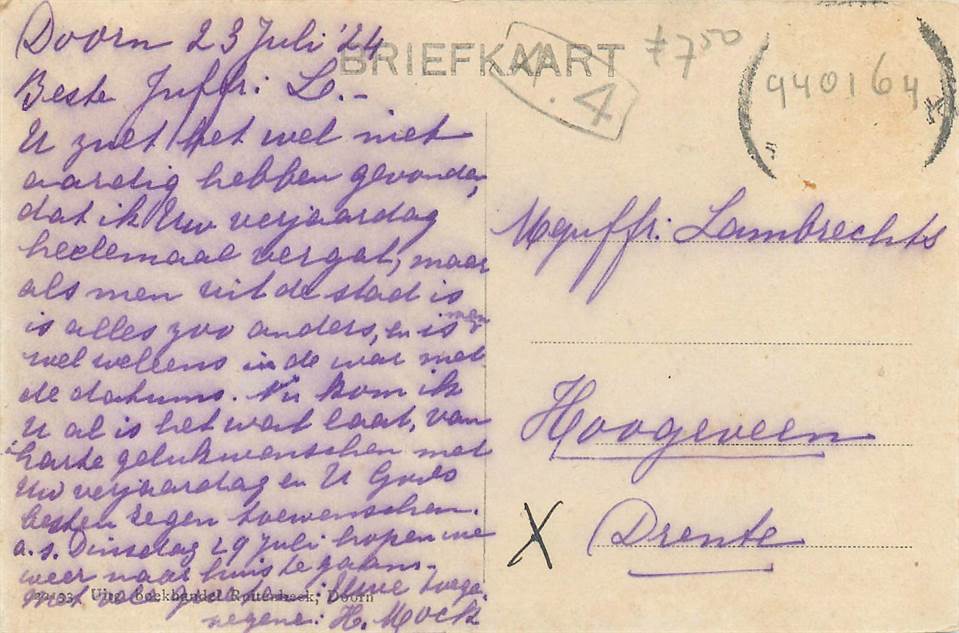 Doorn 23 Juli '24
BRIEFKAART
A. 4
f 7 50
9440164
Beste Juffr. L. –
U zult het wel niet
aardig hebben gevonden,
dat ik Uw verjaardag
heelemaal vergat, maar
als men uit de stad is
is alles zoo anders, en is men
wel weleens in de war met
de datums. Nu kom ik
U al is het wat laat, van
harte gelukwenschen met
Uw verjaardag en U Gods
besten zegen toewenschen.
a.s. Dinsdag 29 Juli hopen we
weer naar huis te gaan.
Met vele groeten Uwe toege-
negene: H. Mock
Uitg. Boekhandel Doorn
Mejuffr. Lambrechts
Hoogeveen
X
Drente